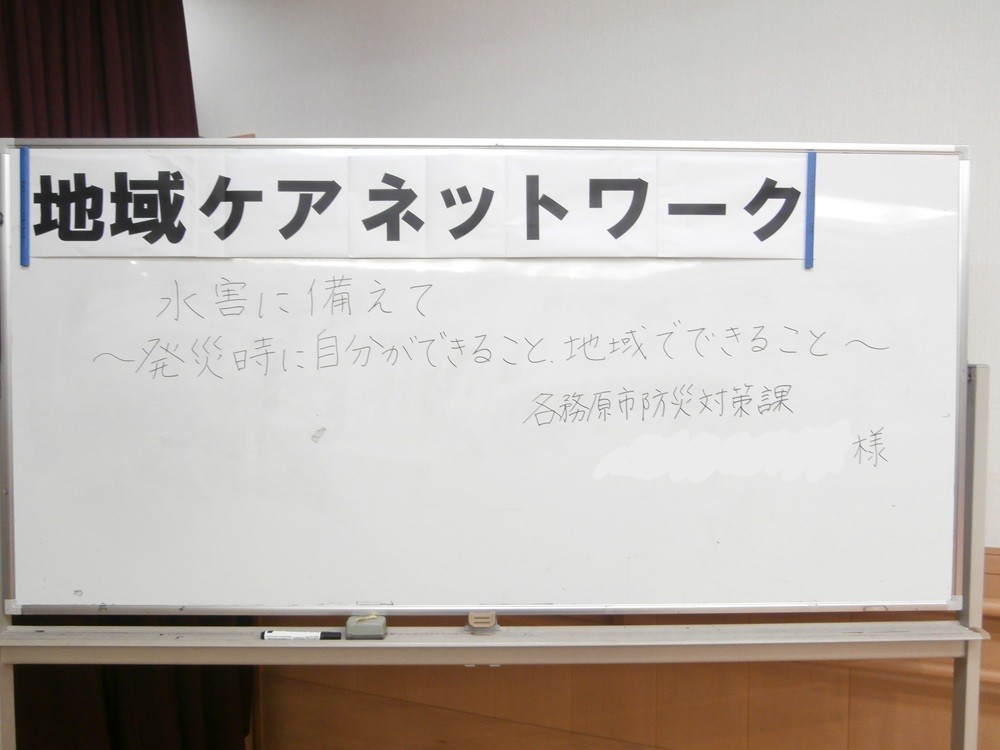 地域ケアネットワーク
水害に備えて
～発災時に自分ができること、地域でできること～
各務原市防災対策課
様